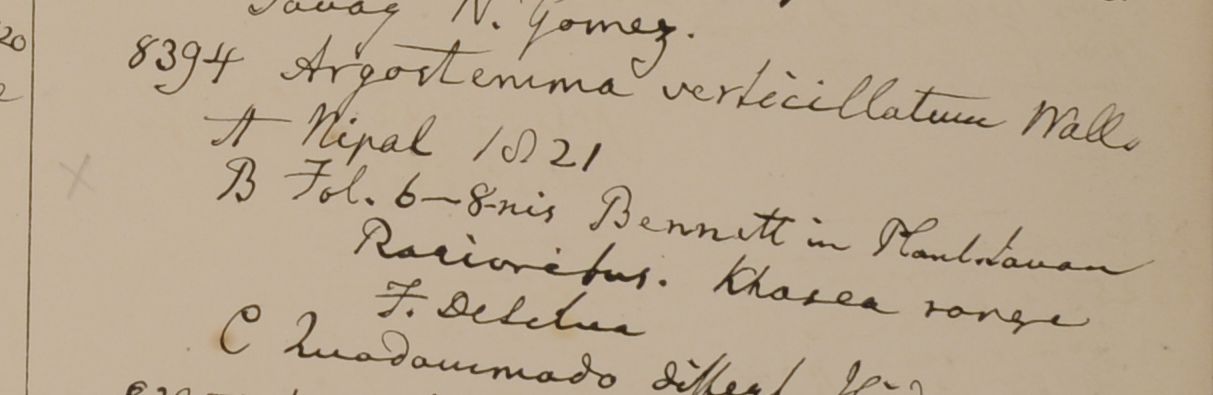 N. Gomez.
20
8394 Argostemma verticillatum Wall.
A Nipal 1821
B Fol. 6-8-nis Bennett in Plant. Javan
Rarioribus. Khasea range
F. De Silva
C Quodammodo differt